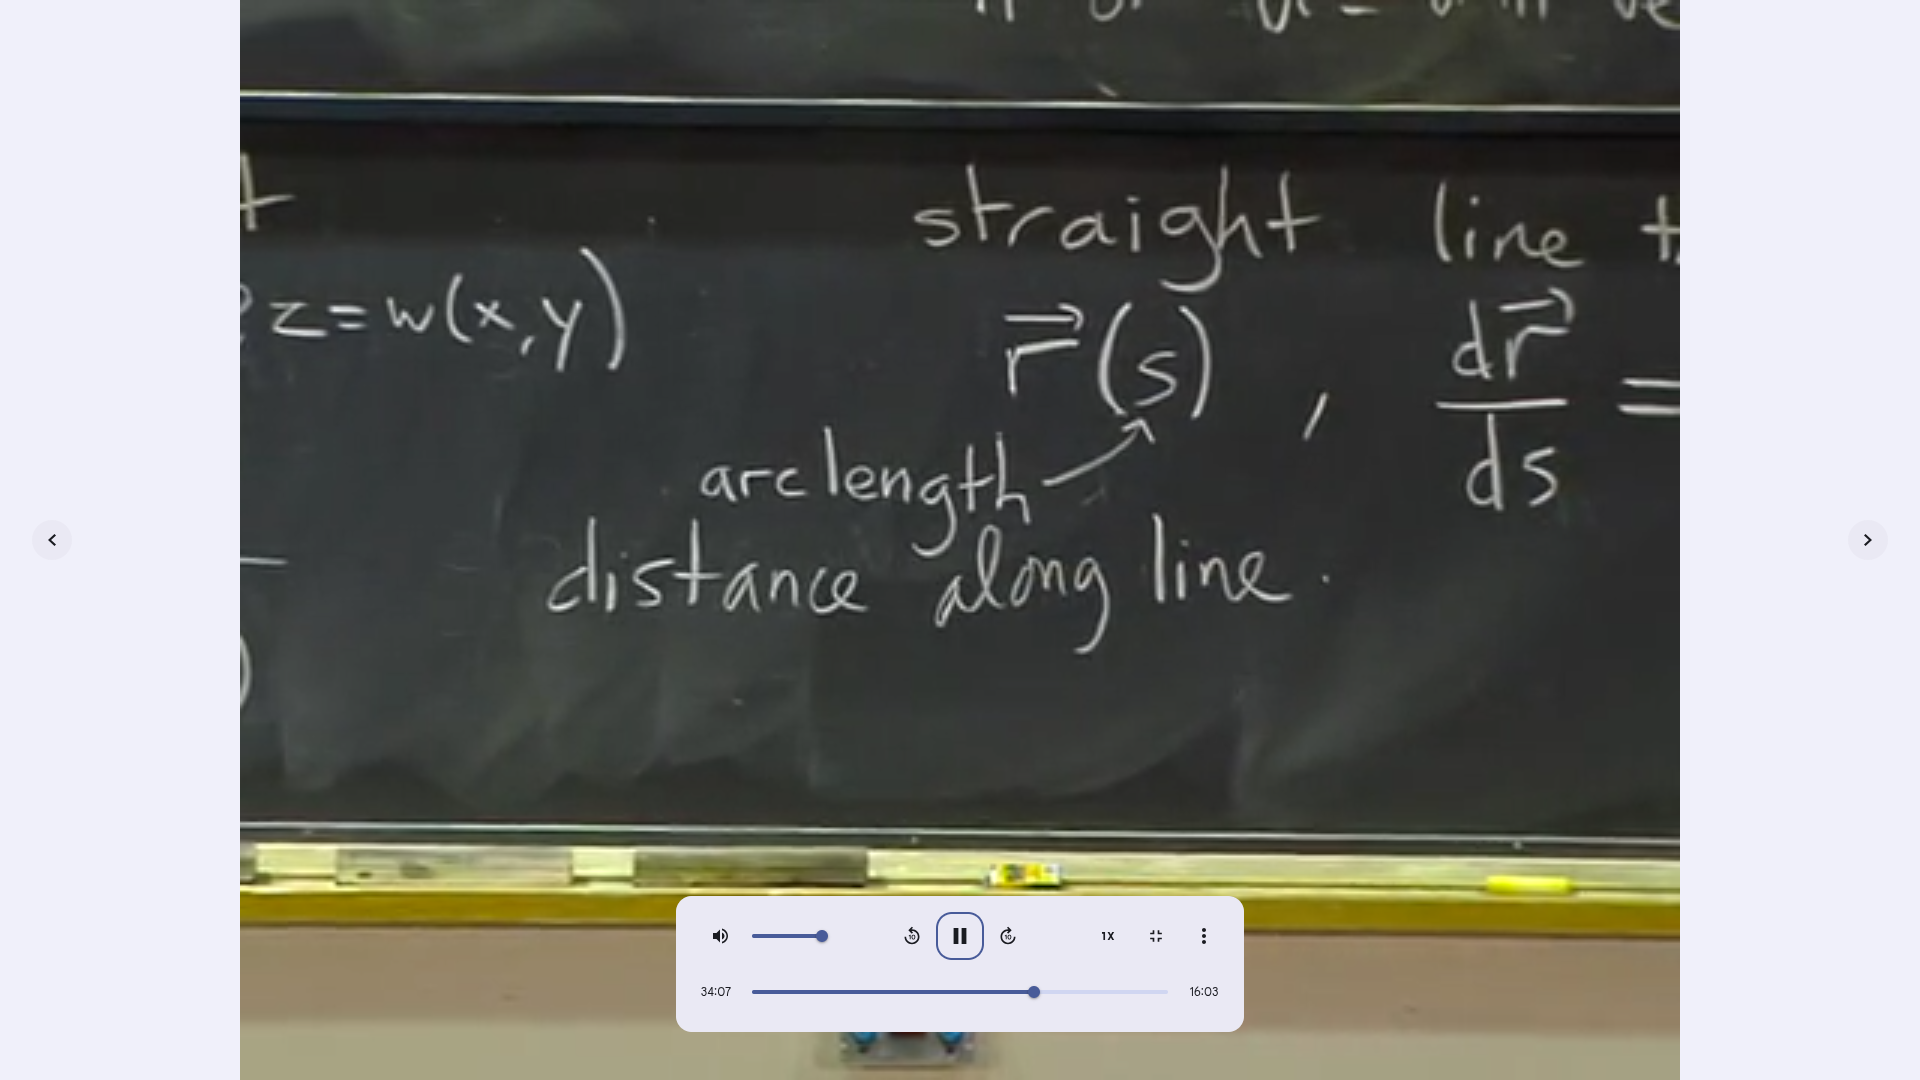 straight line
z=w(x,y)
r⃗(s) , dr⃗/ds =
arclength
distance along line.
1X
34:07
16:03